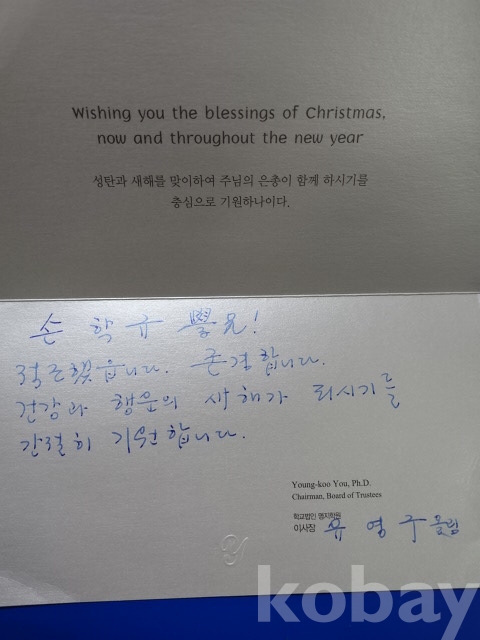 Wishing you the blessings of Christmas,
now and throughout the new year
성탄과 새해를 맞이하여 주님의 은총이 함께 하시기를
충심으로 기원하나이다.
손 학 규 學兄!
격조했읍니다. 존경합니다.
건강과 행운의 새해가 되시기를
간절히 기원합니다.
Young-koo You, Ph.D.
Chairman, Board of Trustees
학교법인 명지학원
이사장 유 영 구 올림
kobay